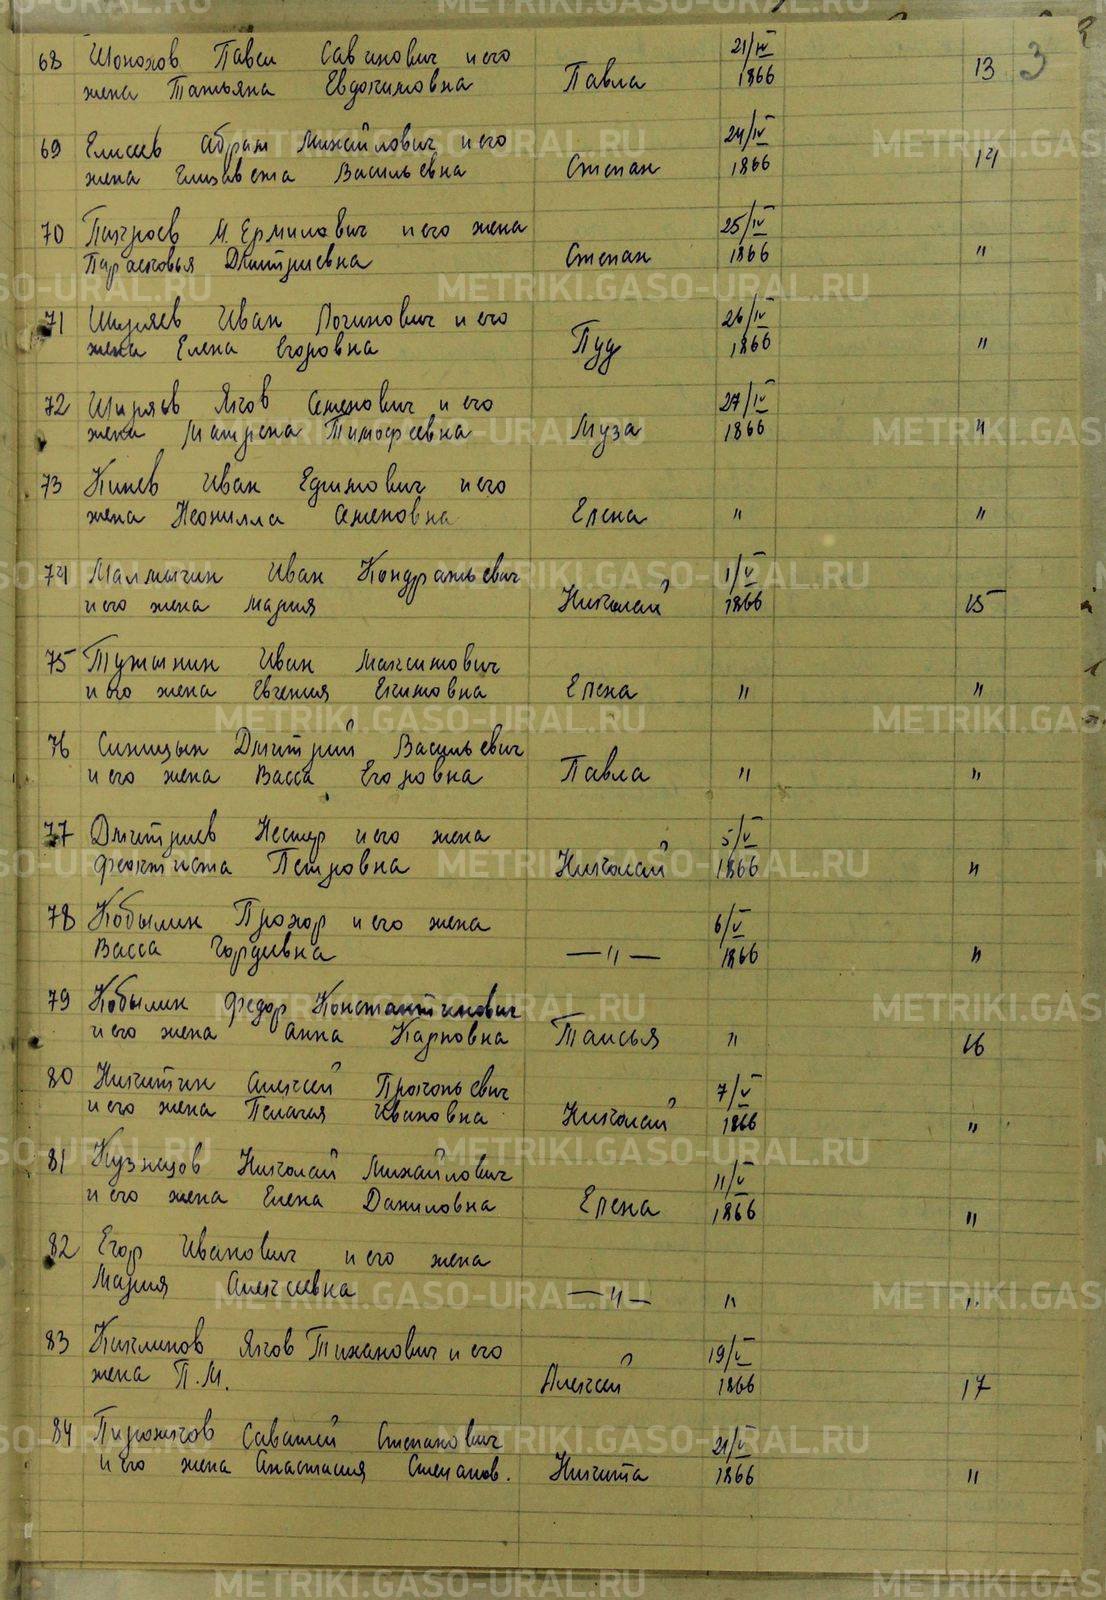 3
68 Шопохов Павел Савинович и его
жена Татьяна Евдокимовна Павла 21/IV 1866 13
69 Елисеев Абрам Михайлович и его
жена Елизавета Васильевна Степан 24/IV 1866 14
70 М. Ермилович и его жена
Парасковья Дмитриевна Степан 25/IV 1866 "
71 Ширяев Иван Логинович и его
жена Елена Егоровна Пуд 26/IV 1866 "
72 Ширяев Яков Семенович и его
жена Матрена Тимофеевна Муза 27/IV 1866 "
73 Кинев Иван Ефимович и его
жена Неонилла Семеновна Елена " "
74 Малмыгин Иван Кондратьевич
и его жена Мария Николай 1/V 1866 15
75 Тужынин Иван Максимович
и его жена Евгения Екимовна Елена " "
76 Синицын Дмитрий Васильевич
и его жена Васса Егоровна Павла " "
77 Дмитриев Нестор и его жена
Феоктиста Петровна Николай 5/V 1866 "
78 Кобылин Прохор и его жена
Васса Гордеевна — " — 6/V 1866 "
79 Кобылин Федор Константинович
и его жена Анна Карповна Таисья " 16
80 Никитин Алексей Прокопьевич
и его жена Пелагея Ивановна Николай 7/V 1866 "
81 Кузнецов Николай Михайлович
и его жена Елена Даниловна Елена 11/V 1866 "
82 Егор Иванович и его жена
Мария Алексеевна — " — " "
83 Киклинов Яков Тиханович и его
жена П.М. Алексей 19/V 1866 17
84 Пирожков Саватей Степанович
и его жена Анастасия Степанов. Никита 21/V 1866 "
METRIKI.GASO-URAL.RU